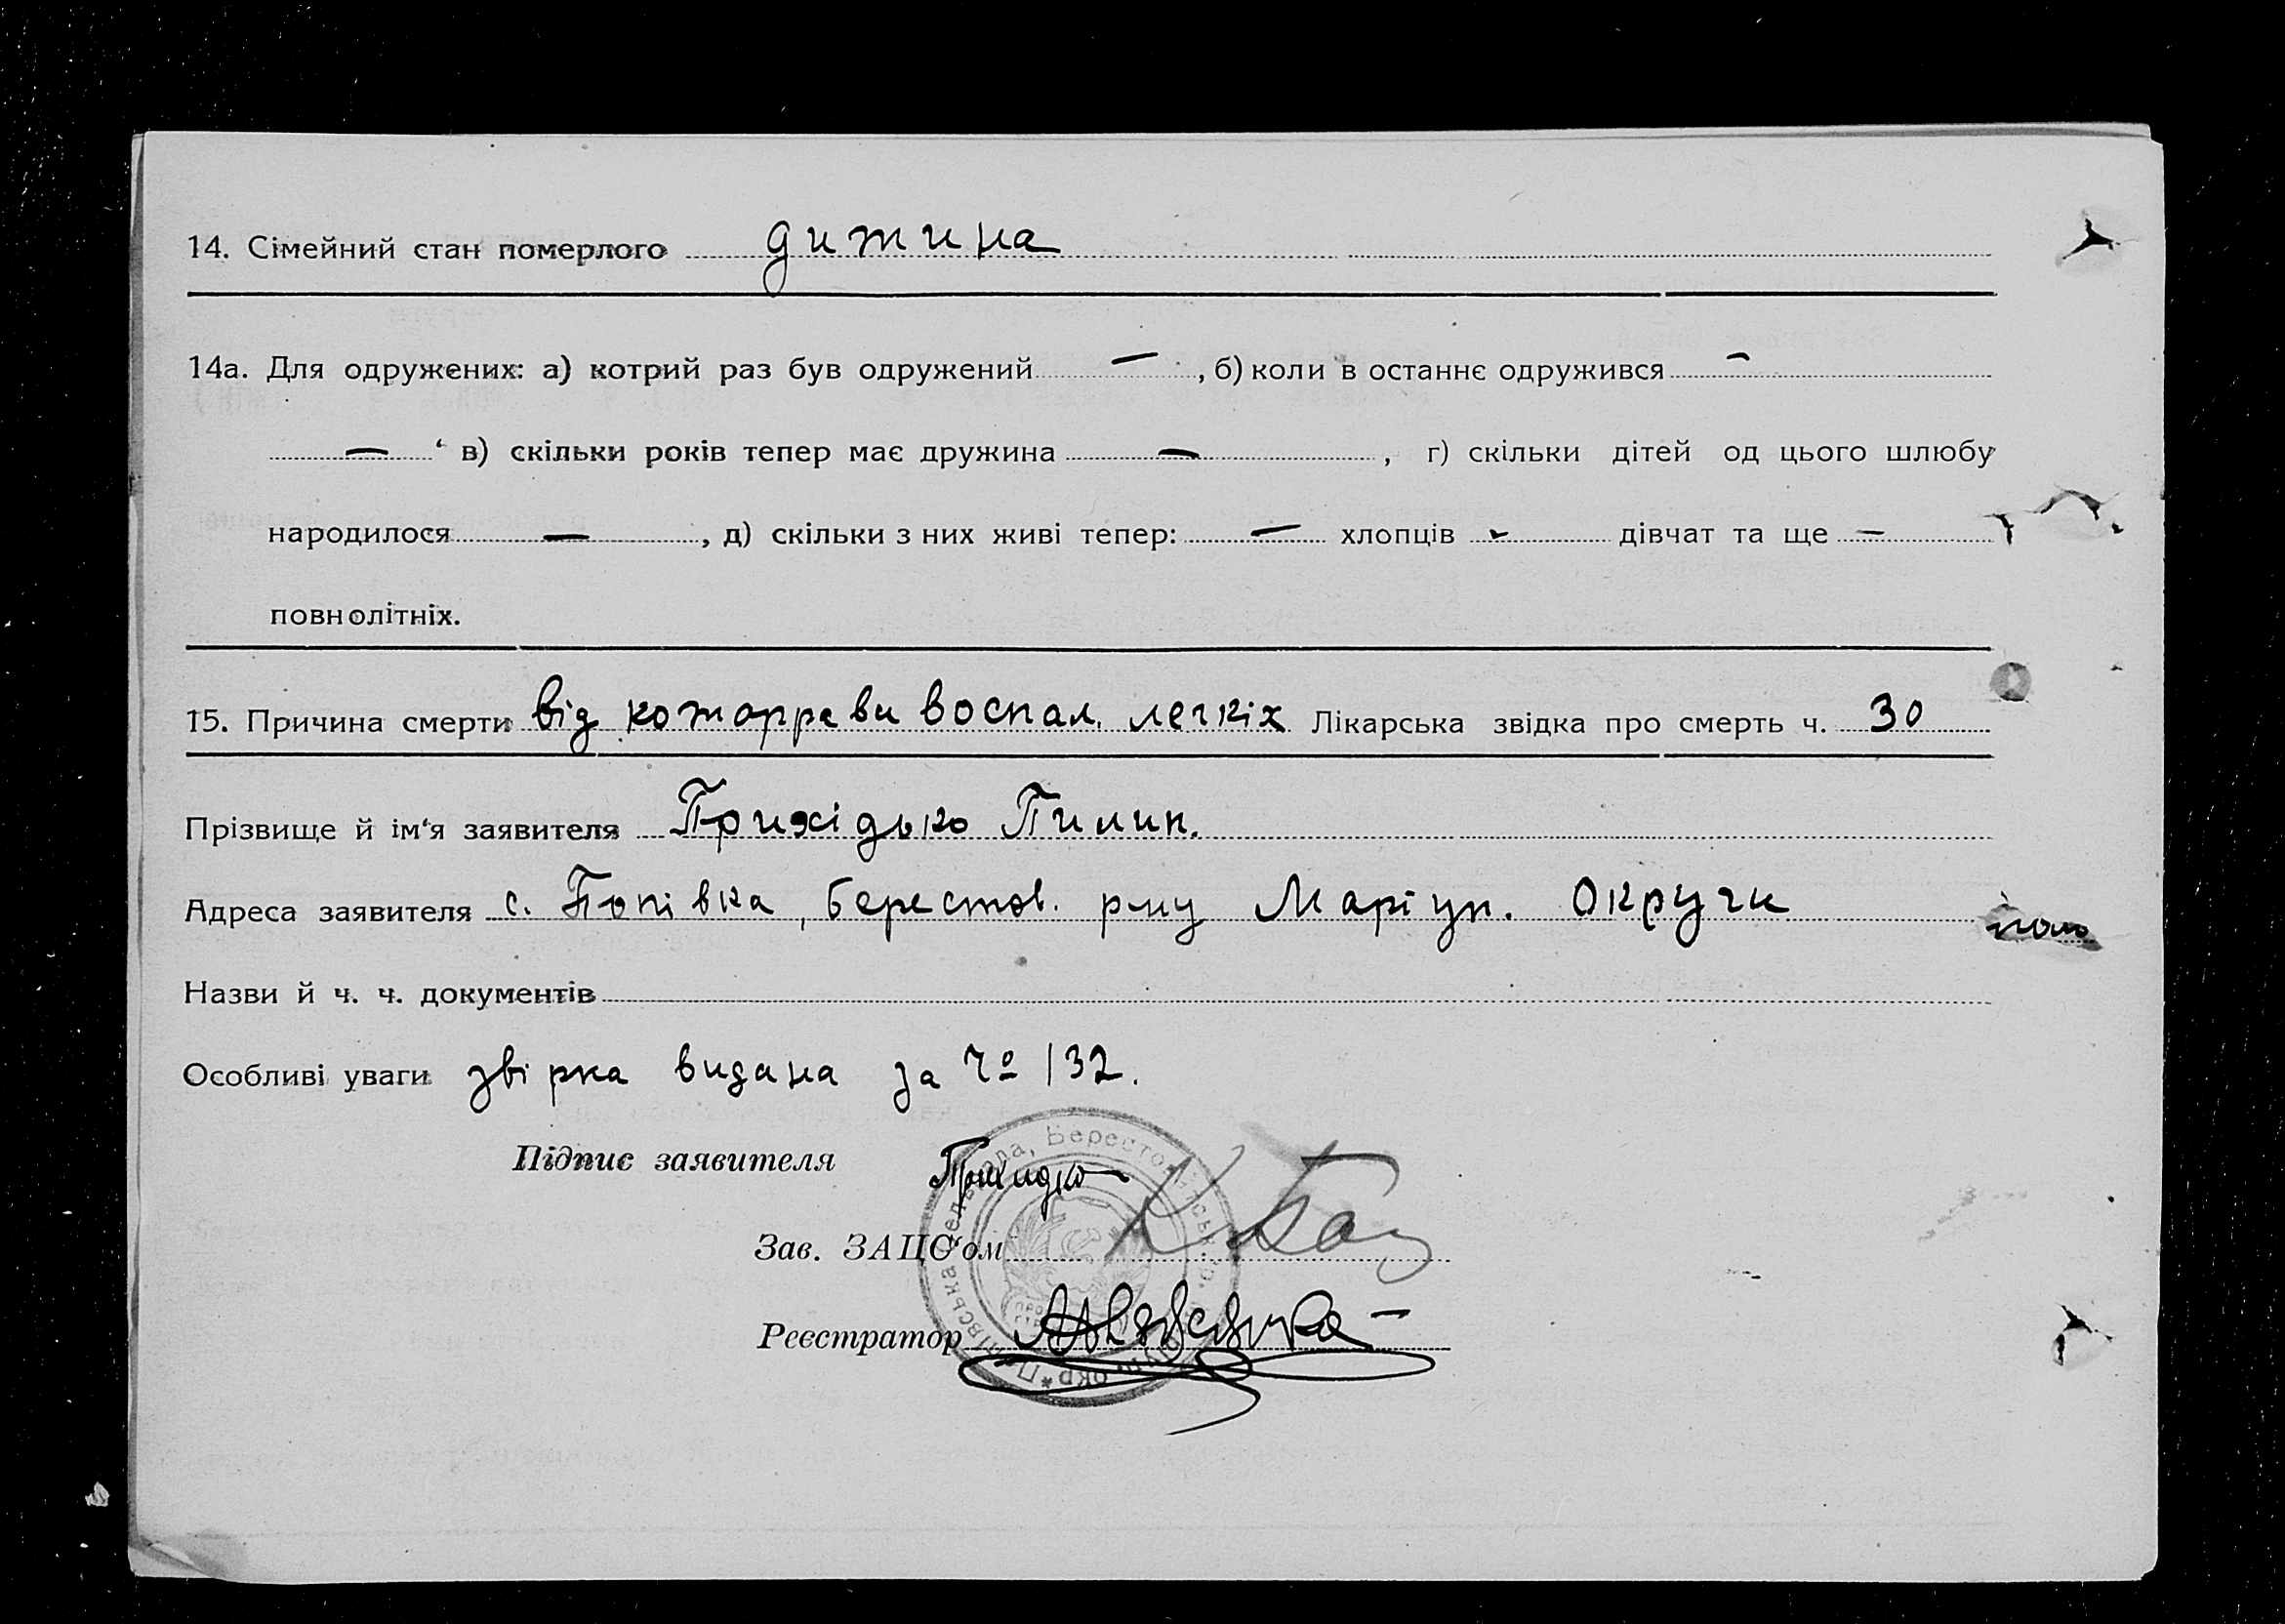 14. Сімейний стан померлого дитина
14а. Для одружених: а) котрий раз був одружений — , б) коли в останнє одружився —
— ‘ в) скільки років тепер має дружина — , г) скільки дітей од цього шлюбу
народилося — , д) скільки з них живі тепер: — хлопців - дівчат та ще —
повнолітніх.
15. Причина смерти від воспал. легкіх Лікарська звідка про смерть ч. 30
Прізвище й ім‘я заявителя Прихідько Пилип.
Адреса заявителя с. Попівка, Берестов. р-ну Маріуп. Округи
Назви й ч. ч. документів
Особливі уваги звірка видана за № 132.
Підпис заявителя
Зав. ЗАЦС‘ом
Реєстратор